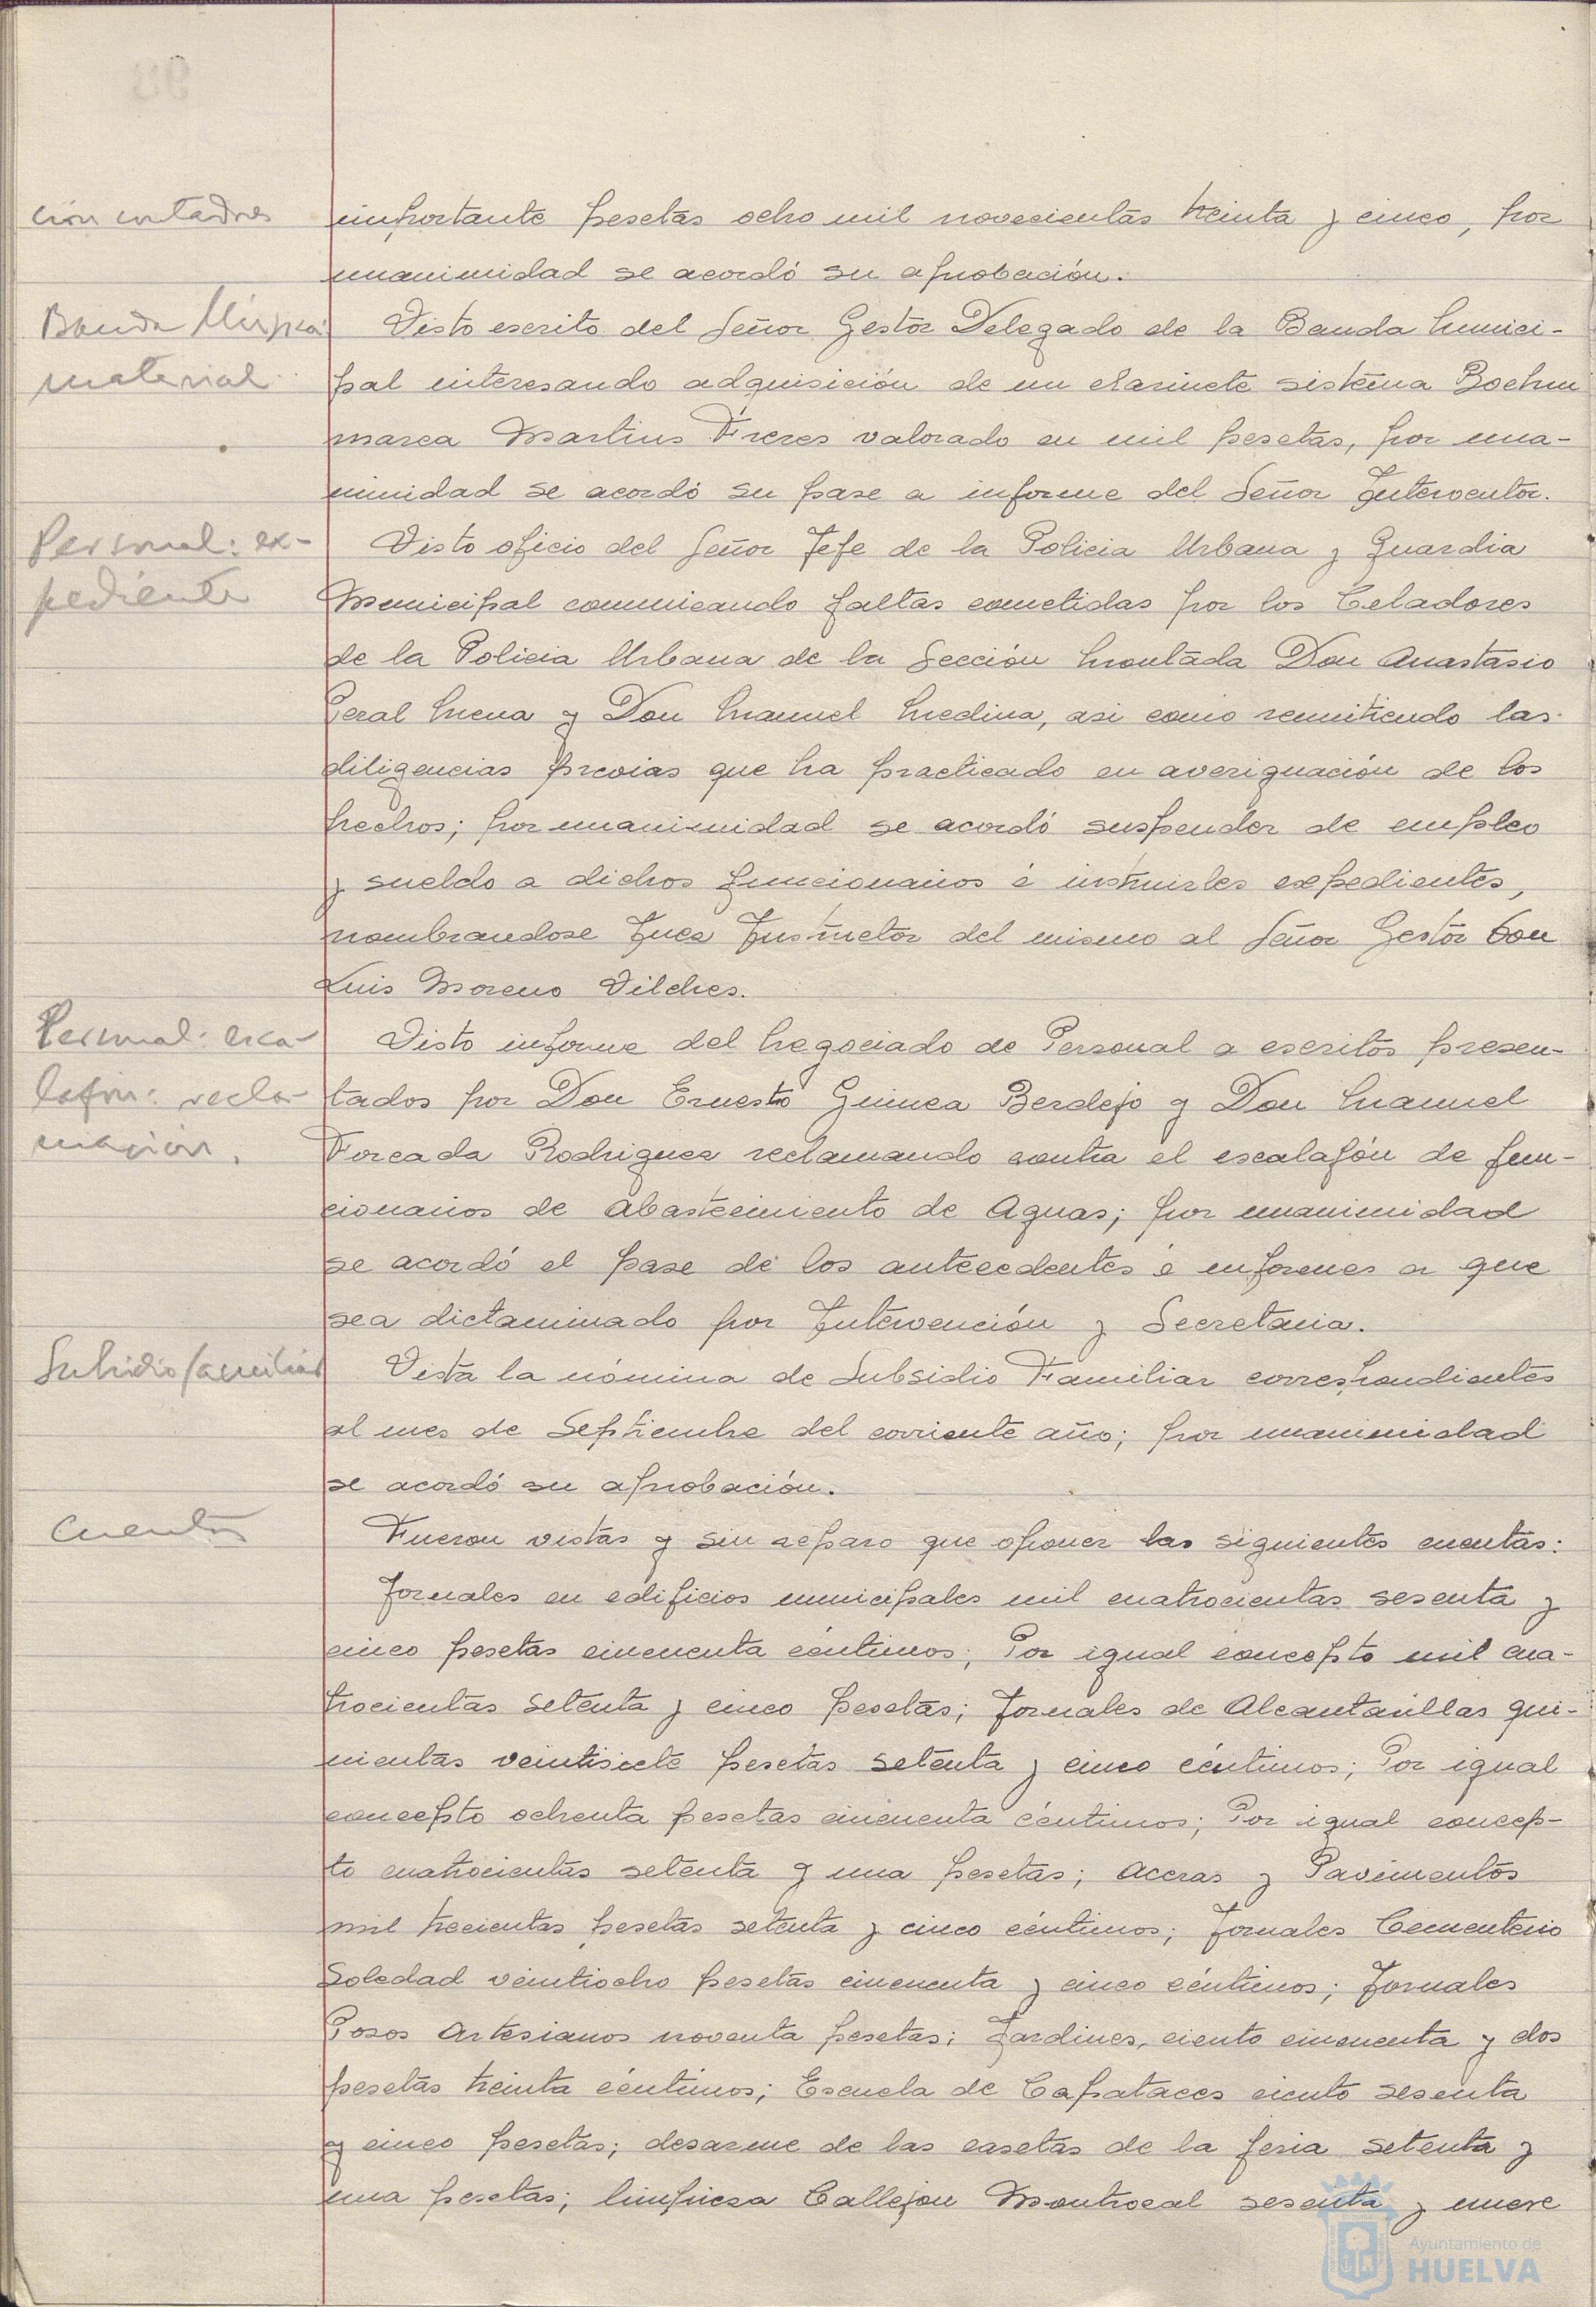 ción contadores
importante pesetas ocho mil novecientas treinta y cinco, por
unanimidad se acordó su aprobación.
Banda Música
material
Visto escrito del Señor Gestor Delegado de la Banda Munici-
pal interesando adquisición de un clarinete sistema Boehm
marca Martins Freres valorado en mil pesetas, por una-
nimidad se acordó su pase a informe del Señor Interventor.
Personal: ex-
pediente
Visto oficio del Señor Jefe de la Policia Urbana y Guardia
Municipal comunicando faltas cometidas por los Celadores
de la Policia Urbana de la Sección Montada Don Anastasio
Peral Mena y Don Manuel Medina, asi como remitiendo las
diligencias previas que ha practicado en averiguación de los
hechos; por unanimidad se acordó suspender de empleo
y sueldo a dichos funcionarios é instruirles expedientes,
nombrandose Juez Instructor del mismo al Señor Gestor Don
Luis Moreno Vilches.
Personal: esca-
lafón: recla-
mación.
Visto informe del Negociado de Personal a escritos presen-
tados por Don Ernesto Guinea Berdejo y Don Manuel
Forcada Rodriguez reclamando contra el escalafón de fun-
cionarios de Abastecimiento de Aguas; por unanimidad
se acordó el pase de los antecedentes é informes a que
sea dictaminado por Intervención y Secretaria.
Subsidio familiar
Vista la nómina de Subsidio Familiar correspondientes
al mes de Septiembre del corriente año; por unanimidad
se acordó su aprobación.
Cuentas
Fueron vistas y sin reparo que oponer las siguientes cuentas:
Jornales en edificios municipales mil cuatrocientas sesenta y
cinco pesetas cincuenta céntimos; Por igual concepto mil cua-
trocientas setenta y cinco pesetas; Jornales de Alcantarillas qui-
nientas veintisiete pesetas setenta y cinco céntimos; Por igual
concepto ochenta pesetas cincuenta céntimos; Por igual concep-
to cuatrocientas setenta y una pesetas; Aceras y Pavimentos
mil trecientas pesetas setenta y cinco céntimos; Jornales Cementerio
Soledad veintiocho pesetas cincuenta y cinco céntimos; Jornales
Posos Artesianos noventa pesetas; Jardines, ciento cincuenta y dos
pesetas treinta céntimos; Escuela de Capataces ciento sesenta
y cinco pesetas; desarme de las casetas de la feria setenta y
una pesetas; limpieza Callejon Montrocal sesenta y nueve
Ayuntamiento de
HUELVA